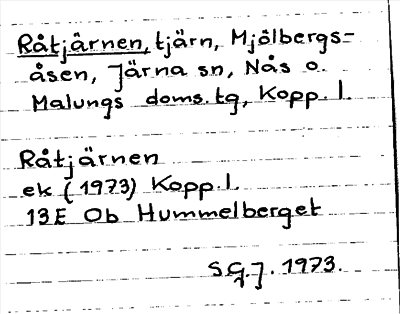 Råtjärnen, tjärn, Mjölbergs=
åsen, Järna sn, Nås o.
Malungs doms. tg, Kopp. l.
Råtjärnen
ek (1973) Kopp. l.
13E Ob Hummelberget
S.G.J. 1973.